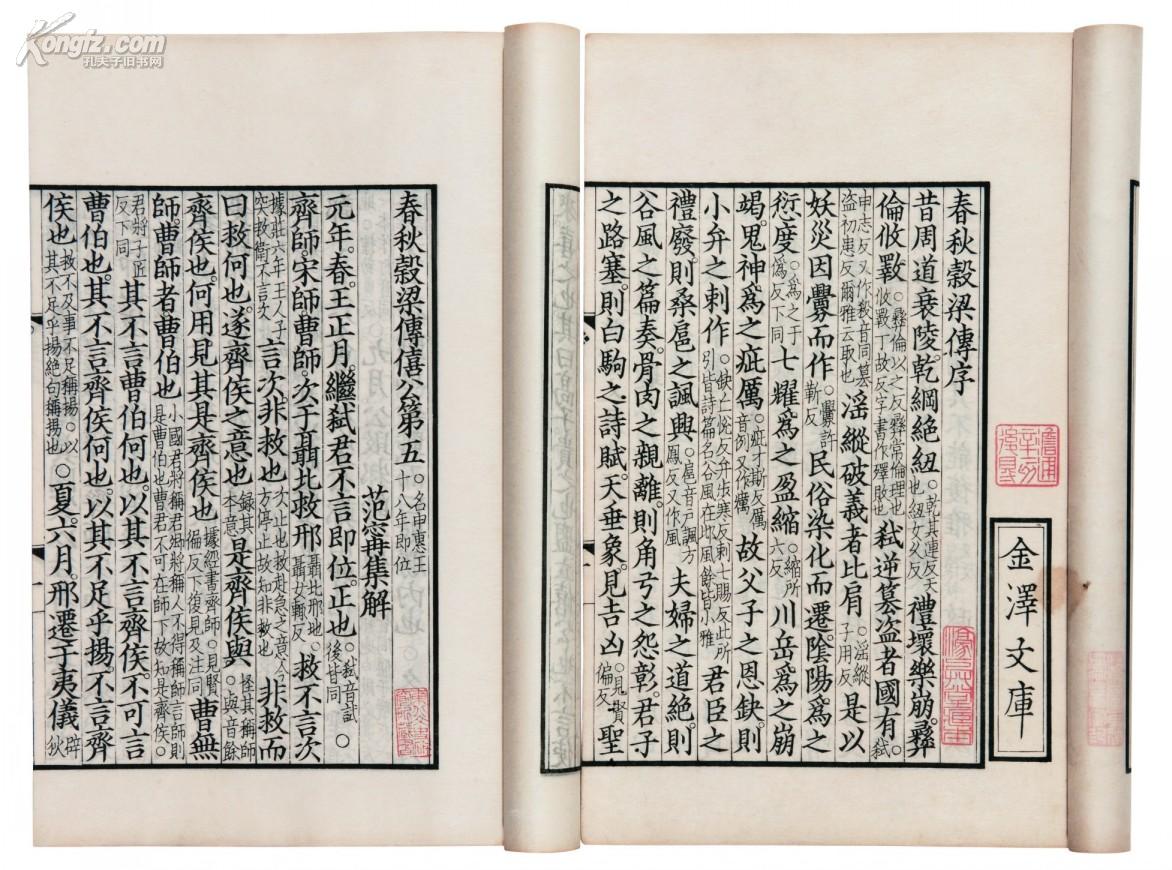 Kongfz.com
孔夫子旧书网
金澤文庫
春秋穀梁傳序
昔周道衰陵。乾綱絕紐。○乾其連反天也紐女久反禮壞樂崩。彝
倫攸斁。○彝倫以之反彝常倫理也攸斁丁故反字書作殬敗也弑逆篡盜者國有。弑
申志反又作殺音同篡盜初患反爾雅云取也淫縱破義者比肩。○淫縱子用反是以
妖災因釁而作。○釁許靳反民俗染化而遷。陰陽爲之
愆度。○爲之于僞反下同七耀爲之盈縮。○縮所六反川岳爲之崩
竭。鬼神爲之疵厲。○疵才斯反厲音例又作癘故父子之恩缺。則
小弁之刺作。○缺丘悅反弁步寒反刺七賜反此所引皆詩篇名谷風在邶風餘皆小雅君臣之
禮廢。則桑扈之諷興。○扈音戶諷方鳳反又作風夫婦之道絕。則
谷風之篇奏。骨肉之親離。則角弓之怨彰。君子
之路塞。則白駒之詩賦。天垂象。見吉凶。○見賢徧反聖
春秋穀梁傳僖公第五○名申惠王十八年即位
范甯集解
元年。春。王正月。繼弑君不言即位。正也。○弑音試後皆同○
齊師。宋師。曹師。次于聶北救邢。聶北邢地○聶女輒反救不言次
據莊六年王人子突救衛不言次言次非救也。次止也救赴急之意今方停止故知非救也非救而
曰救何也。遂齊侯之意也。錄其本意是齊侯與。怪其稱師○與音餘
齊侯也。何用見其是齊侯也。據經書齊師。○見賢徧反下復見及注同曹無
師。曹師者。曹伯也。小國君將稱君卿將稱人不得稱師言師則是曹伯也曹君不可在師下故知是齊侯。○
君將子匠反下同其不言曹伯何也。以其不言齊侯。不可言
曹伯也。其不言齊侯何也。以其不足乎揚。不言齊
侯也。救不及事不足稱揚。○以其不足乎揚絕句稱揚也○夏。六月。邢遷于夷儀。辟狄